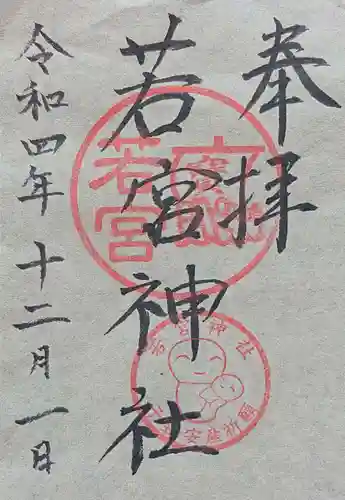 奉拝
若宮神社
令和四年 十二月一日
若宮
若宮神社
安産祈願